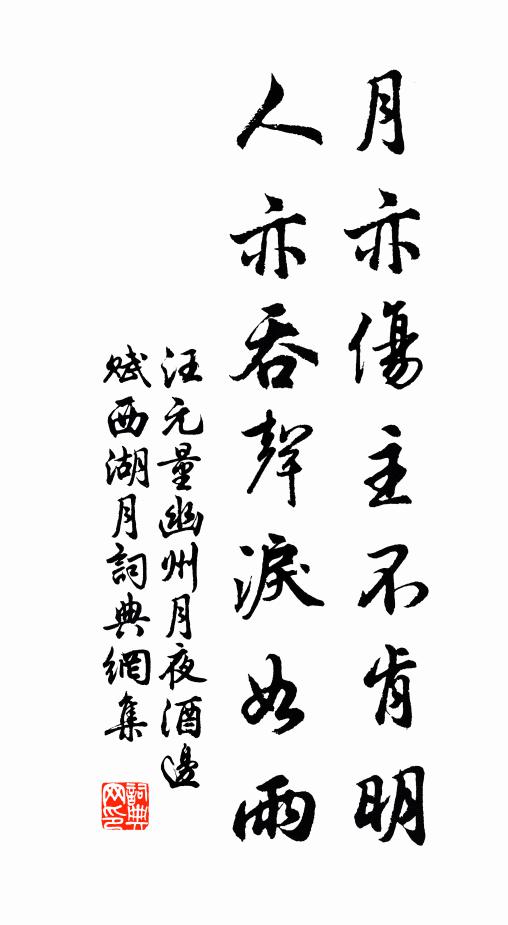 月亦傷主不肯明
人亦吞聲淚如雨
汪元量幽州月夜酒邊
賦西湖月詞典網集
詞典网印